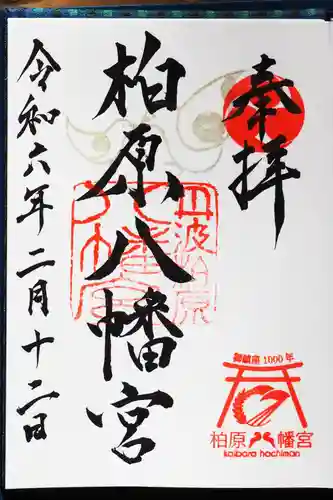 奉拝
柏原八幡宮
丹波柏原
八幡宮
令和六年二月十二日
御鎮座1000年
柏原八幡宮
kaibara hachiman